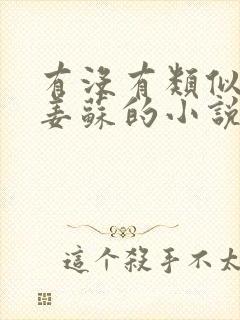 有没有類似
姜蘇的小說
這个殺手不太